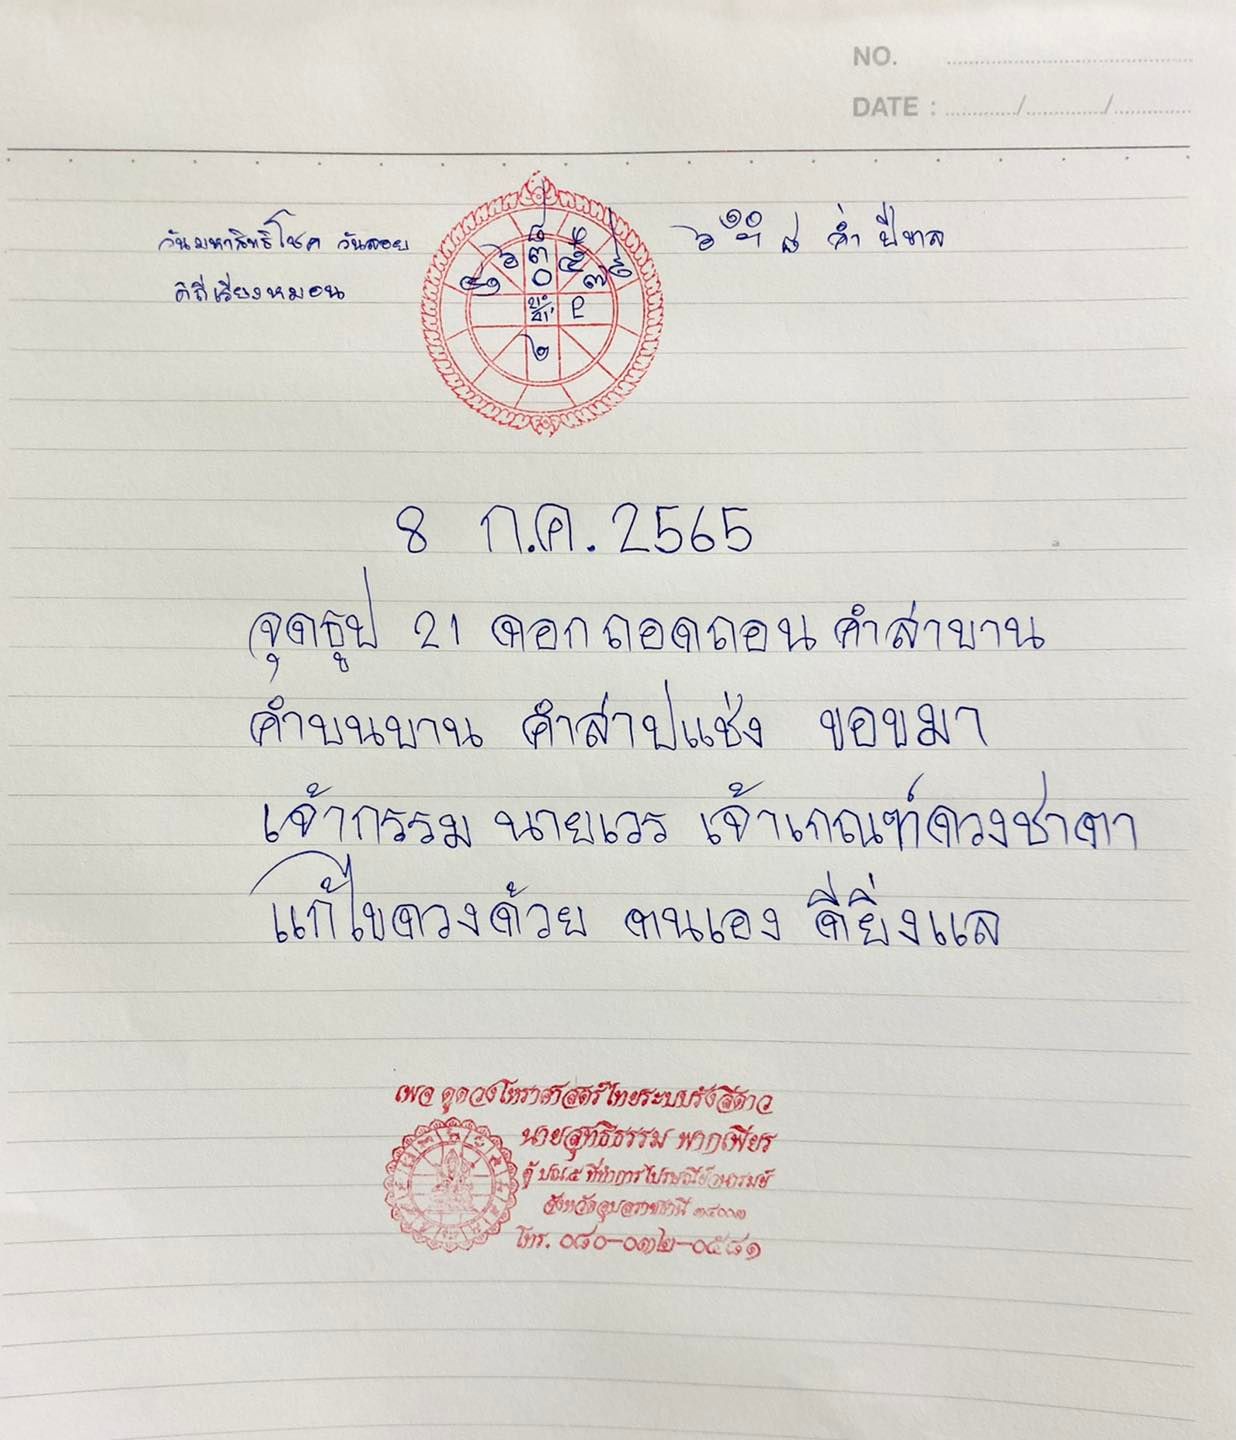 NO.
DATE : ........../........../..........
วันมหาสิทธิโชค วันลอย
ดิถีเรียงหมอน
๘
๖ ๓ ๕
๐ ๗
๒
๑๐
๖ ฯ ๘ ค่ำ ปีขาล
8 ก.ค. 2565
จุดธูป 21 ดอก ถอดถอน คำสาบาน
คำบนบาน คำสาปแช่ง ขอขมา
เจ้ากรรม นายเวร เจ้าเกณฑ์ดวงชาตา
แก้ไขดวงด้วย ตนเอง ดียิ่งแล
เพจ ดูดวงโหราศาสตร์ไทยระบบรังสีดาว
นายสุทธิธรรม พากเพียร
ตู้ ปณ.๕ ที่ทำการไปรษณีย์วารินรมย์
จังหวัดอุบลราชธานี
โทร. ๐๘๐-๐๓๒-๐๕๘๑